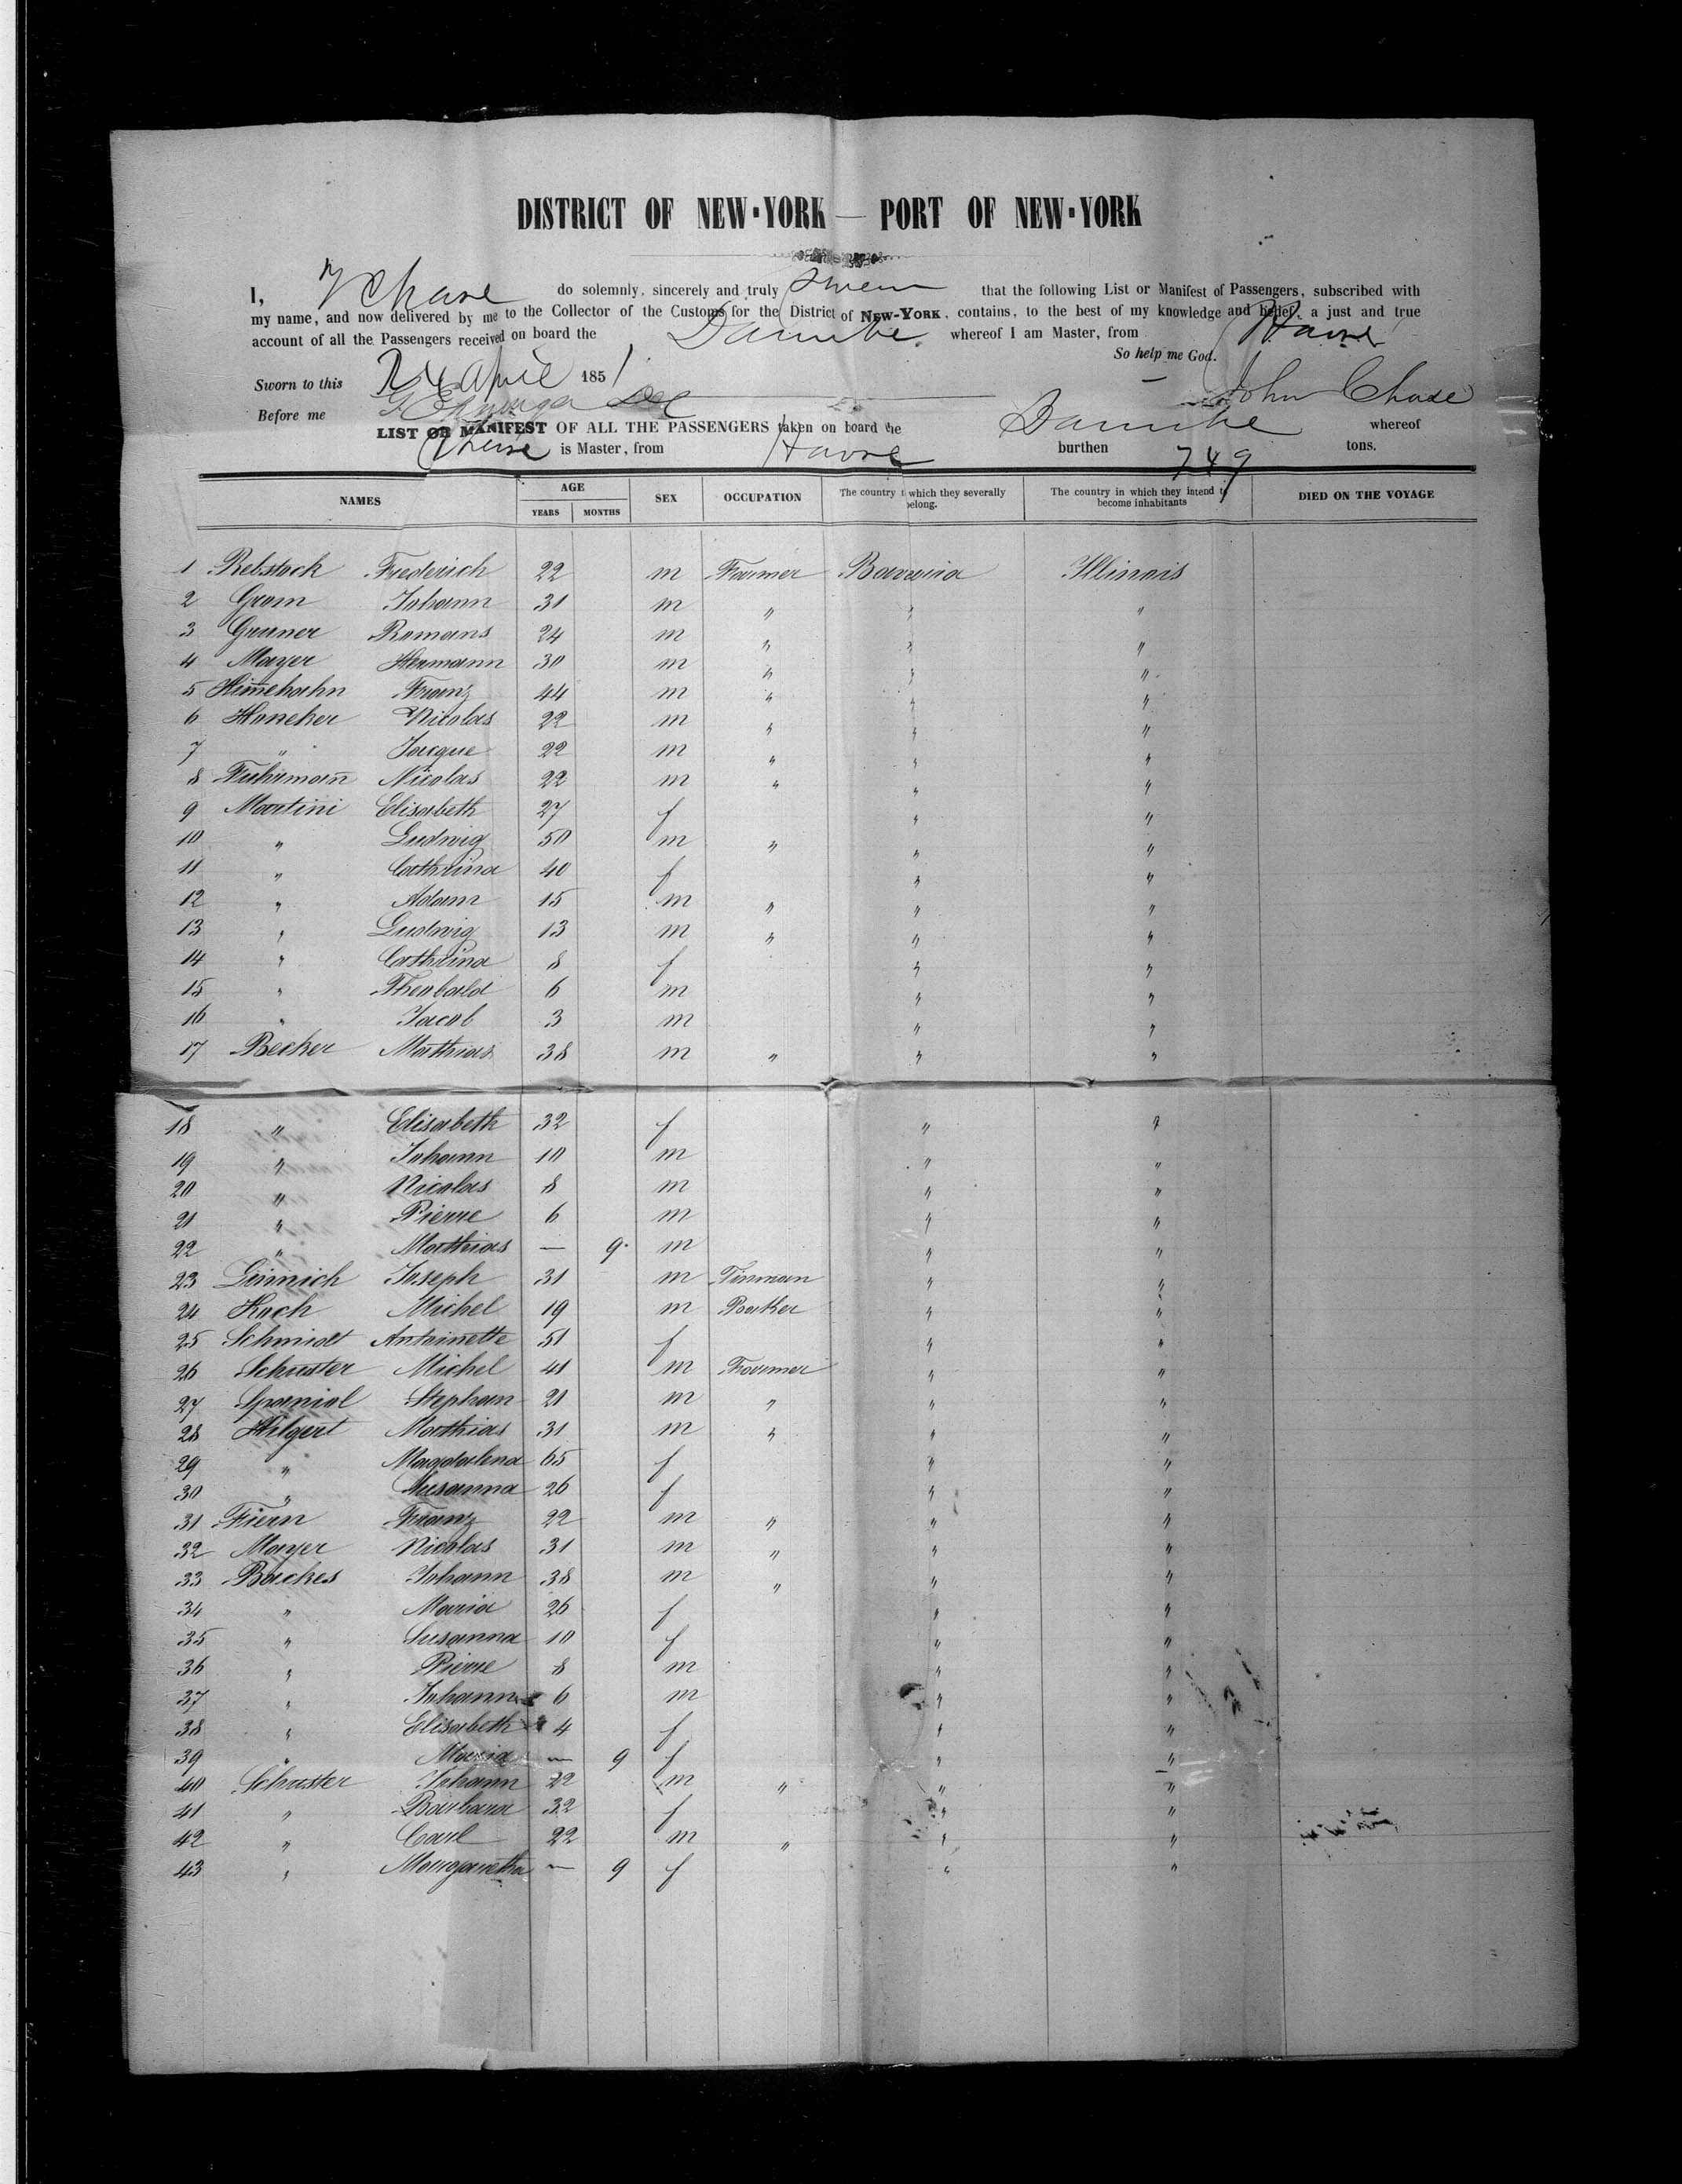 DISTRICT OF NEW-YORK — PORT OF NEW-YORK
I, J Chase do solemnly, sincerely and truly swear that the following List or Manifest of Passengers, subscribed with
my name, and now delivered by me to the Collector of the Customs for the District of NEW-YORK, contains, to the best of my knowledge and belief, a just and true
account of all the Passengers received on board the Danube whereof I am Master, from Havre
So help me God.
Sworn to this 24 April 1851
John Chase
Before me
LIST OR MANIFEST OF ALL THE PASSENGERS taken on board the Danube whereof
Chase is Master, from Havre burthen 749 tons.
NAMES AGE SEX OCCUPATION The country t which they severally belong. The country in which they intend to become inhabitants DIED ON THE VOYAGE
YEARS MONTHS
1 Rebstock Frederich 22 m Farmer Bavaria Illinois
2 Gram Johann 31 m " " "
3 Gruner Romans 24 m " " "
4 Mayer Hermann 30 m " " "
5 Him̄ehahn Franz 44 m " " "
6 Honeker Nicolas 22 m " " "
7 " Jacque 22 m " " "
8 Fuhrman̄ Nicolas 22 m " " "
9 Martini Elisabeth 27 f " "
10 " Ludwig 50 m " " "
11 " Cathrina 40 f " "
12 " Adam 15 m " " "
13 " Ludwig 13 m " " "
14 " Cathrina 8 f " "
15 " Theobald 6 m " "
16 " Jacob 3 m " "
17 Becker Mathias 38 m " " "
18 " Elisabeth 32 f " "
19 " Johann 10 m " "
20 " Nicolas 8 m " "
21 " Pierre 6 m " "
22 " Mathias — 9 m " "
23 Linnich Joseph 31 m Tinman " "
24 Koch Michel 19 m Baker " "
25 Schmidt Antoinette 51 f " "
26 Schuster Michel 41 m Farmer " "
27 Spaniol Stephan 21 m " " "
28 Hilgert Mathias 31 m " " "
29 " Magdalena 65 f " "
30 " Susanna 26 f " "
31 Fiern Franz 22 m " " "
32 Mayer Nicolas 31 m " " "
33 Backes Johann 38 m " " "
34 " Maria 26 f " "
35 " Susanna 10 f " "
36 " Pierre 8 m " "
37 " Johann 6 m " "
38 " Elisabeth 4 f " "
39 " Maria — 9 f " "
40 Schuster Johann 22 m " " "
41 " Barbara 32 f " "
42 " Carl 22 m " " "
43 " Margaretha — 9 f " "